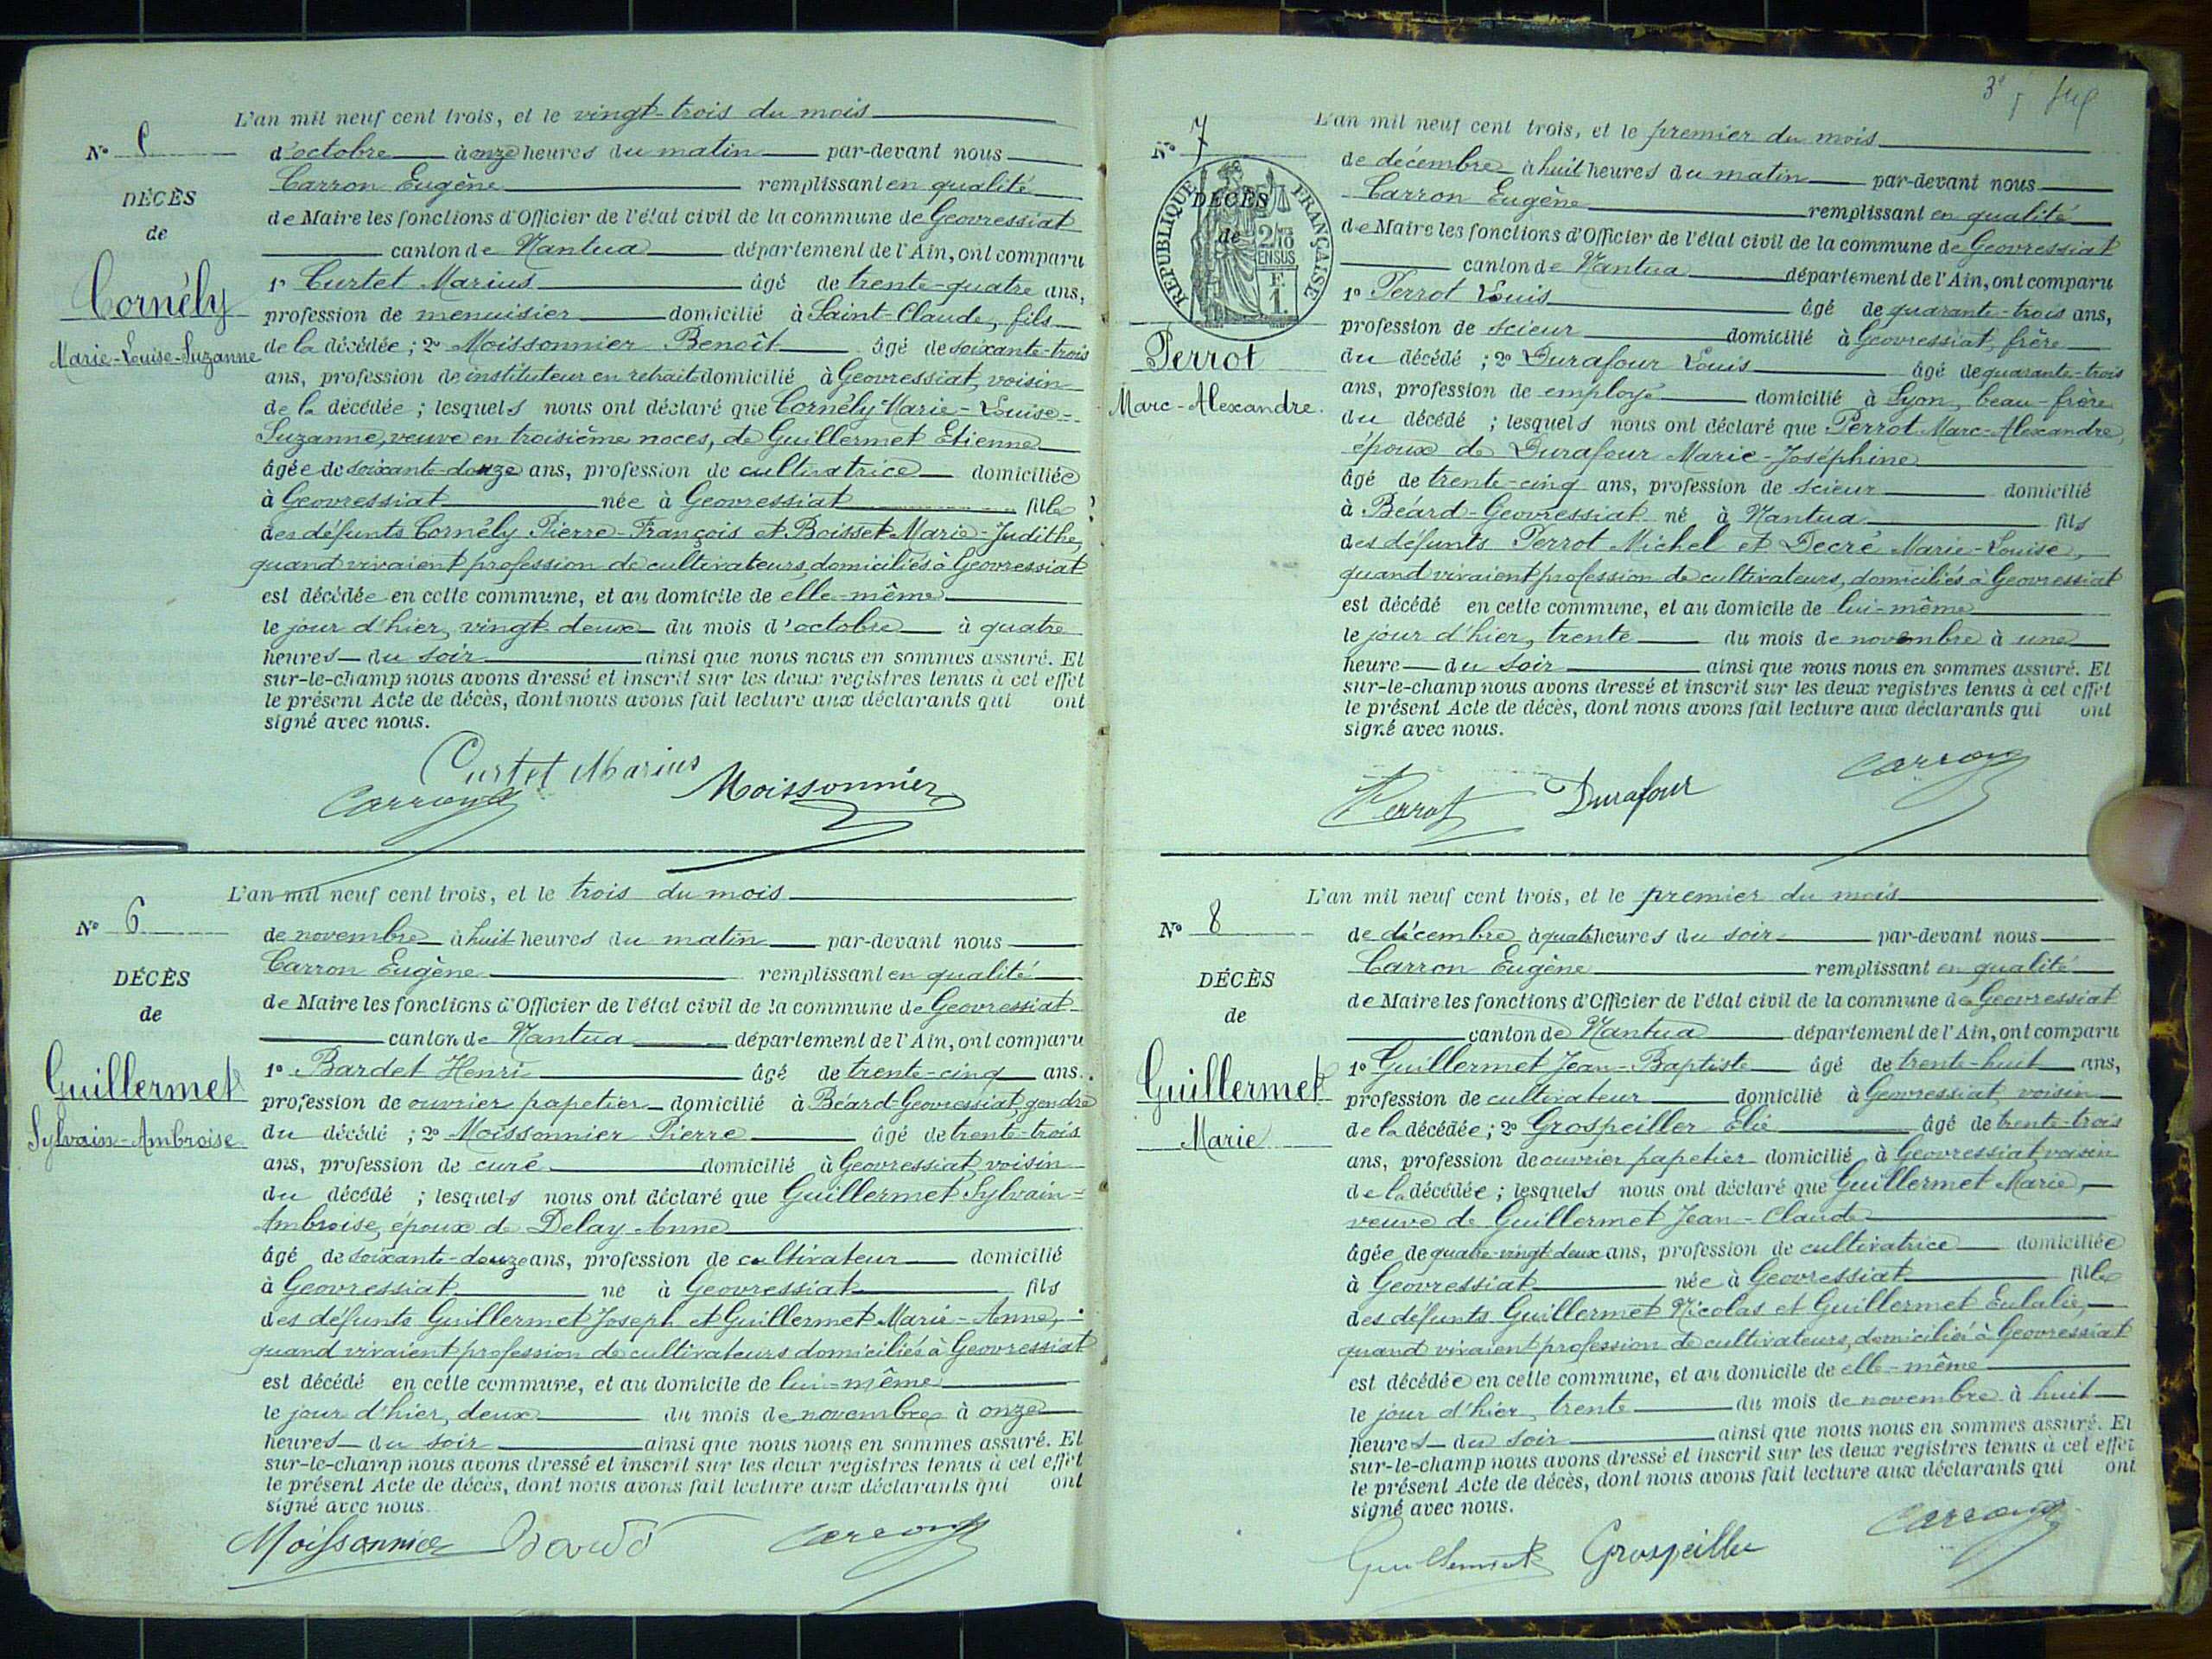 L'an mil neuf cent trois, et le vingt-trois du mois
N° 5
d'octobre à onze heures du matin par-devant nous
Carron Eugène remplissant en qualité
DÉCÈS
de Maire les fonctions d'Officier de l'état civil de la commune de Geovressiat
de
canton de Nantua département de l'Ain, ont comparu
1° Curtet Marius âgé de trente-quatre ans,
Cornély
profession de menuisier domicilié à Saint-Claude, fils
Marie-Louise-Suzanne
de la décédée ; 2° Moissonnier Benoît âgé de soixante-trois
ans, profession de instituteur en retraite domicilié à Geovressiat, voisin
de la décédée ; lesquels nous ont déclaré que Cornély Marie-Louise-
Suzanne, veuve en troisième noces, de Guillermet Etienne
âgée de soixante-douze ans, profession de cultivatrice domiciliée
à Geovressiat née à Geovressiat fille
des défunts Cornély Pierre-François et Boisset Marie-Judithe,
quand vivaient profession de cultivateurs, domiciliés à Geovressiat
est décédée en cette commune, et au domicile de elle-même
le jour d'hier, vingt-deux du mois d'octobre à quatre
heures du soir ainsi que nous nous en sommes assuré. Et
sur-le-champ nous avons dressé et inscrit sur les deux registres tenus à cet effet
le présent Acte de décès, dont nous avons fait lecture aux déclarants qui ont
signé avec nous.
Curtet Marius
Carron Moissonnier
L'an mil neuf cent trois, et le trois du mois
N° 6
de novembre à huit heures du matin par-devant nous
Carron Eugène remplissant en qualité
DÉCÈS
de Maire les fonctions d'Officier de l'état civil de la commune de Geovressiat
de
canton de Nantua département de l'Ain, ont comparu
1° Bardet Henri âgé de trente-cinq ans.
Guillermet
profession de ouvrier papetier domicilié à Béard-Geovressiat, gendre
Sylvain-Ambroise
du décédé ; 2° Moissonnier Pierre âgé de trente-trois
ans, profession de curé domicilié à Geovressiat, voisin
du décédé ; lesquels nous ont déclaré que Guillermet Sylvain-
Ambroise, époux de Delay Anne
âgé de soixante-douze ans, profession de cultivateur domicilié
à Geovressiat né à Geovressiat fils
des défunts Guillermet Joseph et Guillermet Marie-Anne,
quand vivaient profession de cultivateurs domiciliés à Geovressiat
est décédé en cette commune, et au domicile de lui-même
le jour d'hier, deux du mois de novembre à onze
heures du soir ainsi que nous nous en sommes assuré. Et
sur-le-champ nous avons dressé et inscrit sur les deux registres tenus à cet effet
le présent Acte de décès, dont nous avons fait lecture aux déclarants qui ont
signé avec nous.
Moissonnier Carron
3e
L'an mil neuf cent trois, et le premier du mois
N° 7
de décembre à huit heures du matin par-devant nous
Carron Eugène remplissant en qualité
DÉCÈS
de Maire les fonctions d'Officier de l'état civil de la commune de Geovressiat
de
REPUBLIQUE FRANÇAISE
2/10 EN SUS
F. 1.
canton de Nantua département de l'Ain, ont comparu
1° Perrot Louis âgé de quarante-trois ans,
profession de scieur domicilié à Geovressiat, frère
Perrot
du décédé ; 2° Durafour Louis âgé de quarante-trois
Marc-Alexandre.
ans, profession de employé domicilié à Lyon, beau-frère
du décédé ; lesquels nous ont déclaré que Perrot Marc-Alexandre,
époux de Durafour Marie-Joséphine
âgé de trente-cinq ans, profession de scieur domicilié
à Béard-Geovressiat né à Nantua fils
des défunts Perrot Michel et Decré Marie-Louise,
quand vivaient profession de cultivateurs, domiciliés à Geovressiat
est décédé en cette commune, et au domicile de lui-même
le jour d'hier, trente du mois de novembre à une
heure du soir ainsi que nous nous en sommes assuré. Et
sur-le-champ nous avons dressé et inscrit sur les deux registres tenus à cet effet
le présent Acte de décès, dont nous avons fait lecture aux déclarants qui ont
signé avec nous.
Perrot Durafour Carron
L'an mil neuf cent trois, et le premier du mois
N° 8
de décembre à quatre heures du soir par-devant nous
Carron Eugène remplissant en qualité
DÉCÈS
de Maire les fonctions d'Officier de l'état civil de la commune de Geovressiat
de
canton de Nantua département de l'Ain, ont comparu
1° Guillermet Jean-Baptiste âgé de trente-huit ans,
Guillermet
profession de cultivateur domicilié à Geovressiat, voisin
Marie
de la décédée ; 2° Grospeiller Elie âgé de trente-trois
ans, profession de ouvrier papetier domicilié à Geovressiat, voisin
de la décédée ; lesquels nous ont déclaré que Guillermet Marie,
veuve de Guillermet Jean-Claude
âgée de quatre-vingt-deux ans, profession de cultivatrice domiciliée
à Geovressiat née à Geovressiat fille
des défunts Guillermet Nicolas et Guillermet Eulalie,
quand vivaient profession de cultivateurs, domiciliés à Geovressiat
est décédée en cette commune, et au domicile de elle-même
le jour d'hier, trente du mois de novembre à huit
heures du soir ainsi que nous nous en sommes assuré. Et
sur-le-champ nous avons dressé et inscrit sur les deux registres tenus à cet effet
le présent Acte de décès, dont nous avons fait lecture aux déclarants qui ont
signé avec nous.
Guillermet Grospeiller Carron